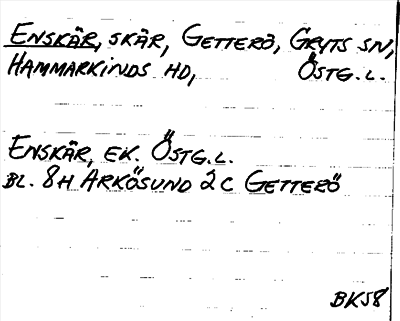 ENSKÄR, SKÄR, GETTERÖ, GRYTS SN,
HAMMARKINDS HD, ÖSTG.L.
ENSKÄR, EK. ÖSTG.L.
BL. 8H ARKÖSUND 2C GETTERÖ
BK58